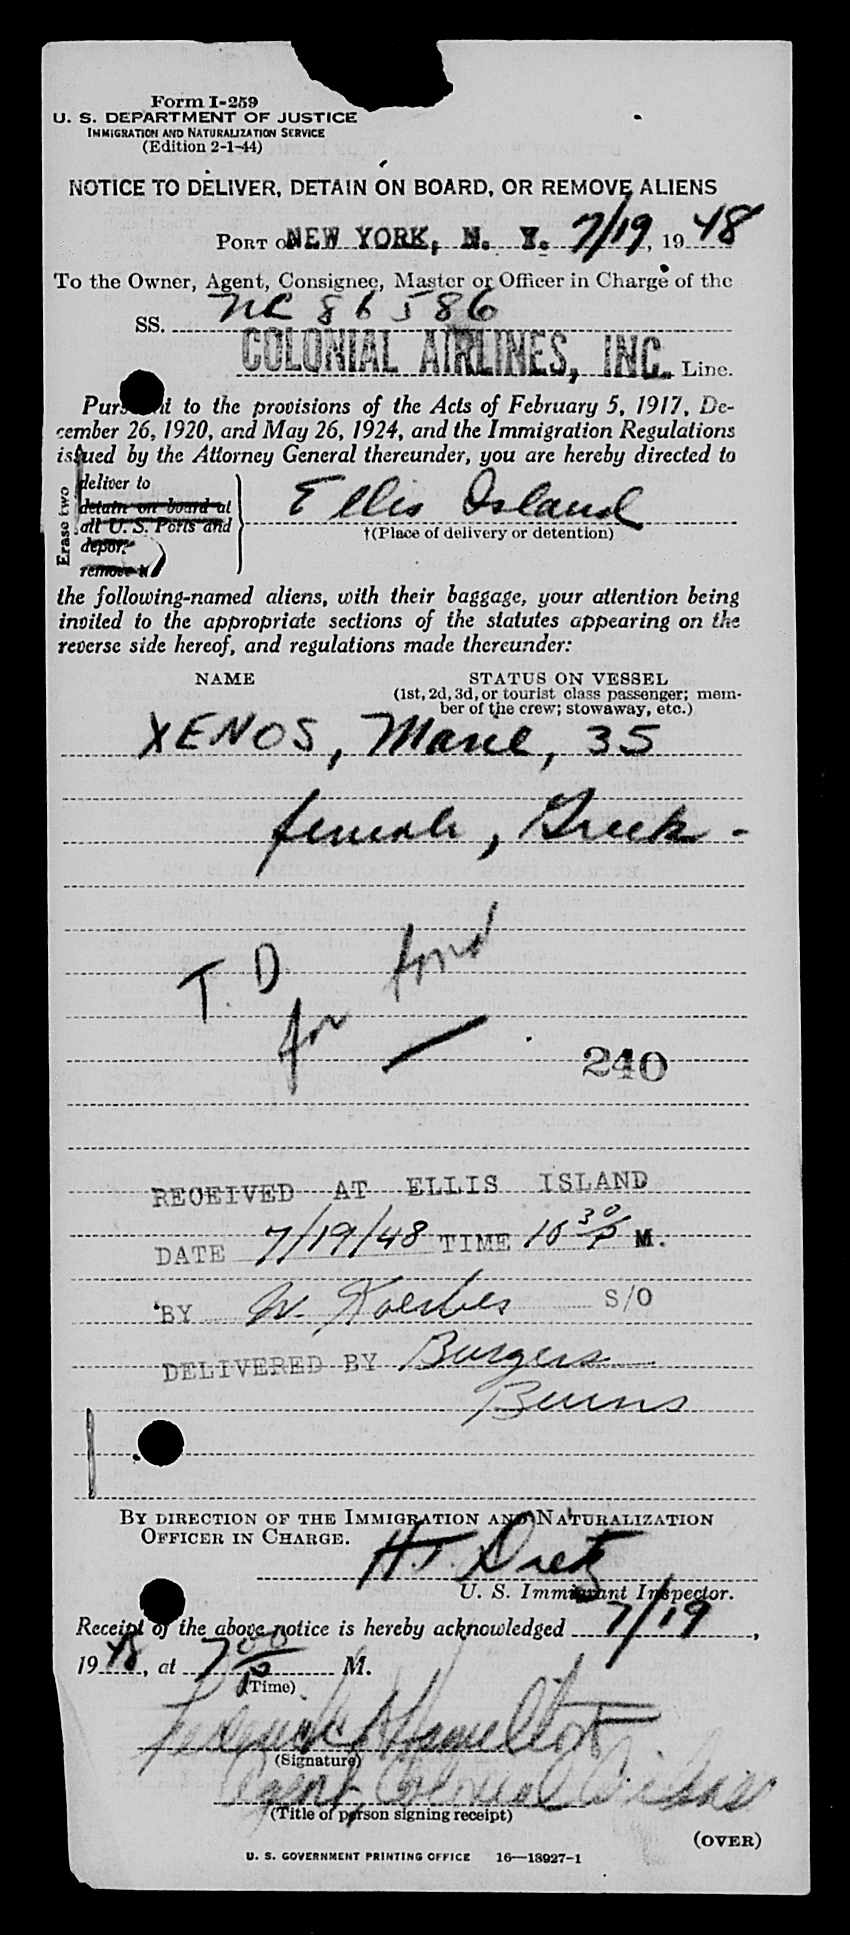 Form I-259
U. S. DEPARTMENT OF JUSTICE
IMMIGRATION AND NATURALIZATION SERVICE
(Edition 2-1-44)
NOTICE TO DELIVER, DETAIN ON BOARD, OR REMOVE ALIENS
PORT OF NEW YORK, N. Y. 7/19, 1948
To the Owner, Agent, Consignee, Master or Officer in Charge of the
SS. NC 86586
COLONIAL AIRLINES, INC. Line.
Pursuant to the provisions of the Acts of February 5, 1917, De-
cember 26, 1920, and May 26, 1924, and the Immigration Regulations
issued by the Attorney General thereunder, you are hereby directed to
Erase two
deliver to
detain on board at
all U. S. Ports and
depor.
remove
Ellis Island
†(Place of delivery or detention)
the following-named aliens, with their baggage, your attention being
invited to the appropriate sections of the statutes appearing on the
reverse side hereof, and regulations made thereunder:
NAME STATUS ON VESSEL
(1st, 2d, 3d, or tourist class passenger; mem-
ber of the crew; stowaway, etc.)
XENOS, Marie, 35
female, Greek -
T. D.
for
240
RECEIVED AT ELLIS ISLAND
DATE 7/19/48 TIME 10 30/P M.
BY W. S/O
DELIVERED BY Burgers
Burns
BY DIRECTION OF THE IMMIGRATION AND NATURALIZATION
OFFICER IN CHARGE.
H.T. Dietz
U. S. Immigrant Inspector.
Receipt of the above notice is hereby acknowledged 7/19,
1948, at 7 00/P M.
(Time)
Hamilton
(Signature)
Agent, Colonial Airlines
(Title of person signing receipt)
(OVER)
U. S. GOVERNMENT PRINTING OFFICE 16—18927-1